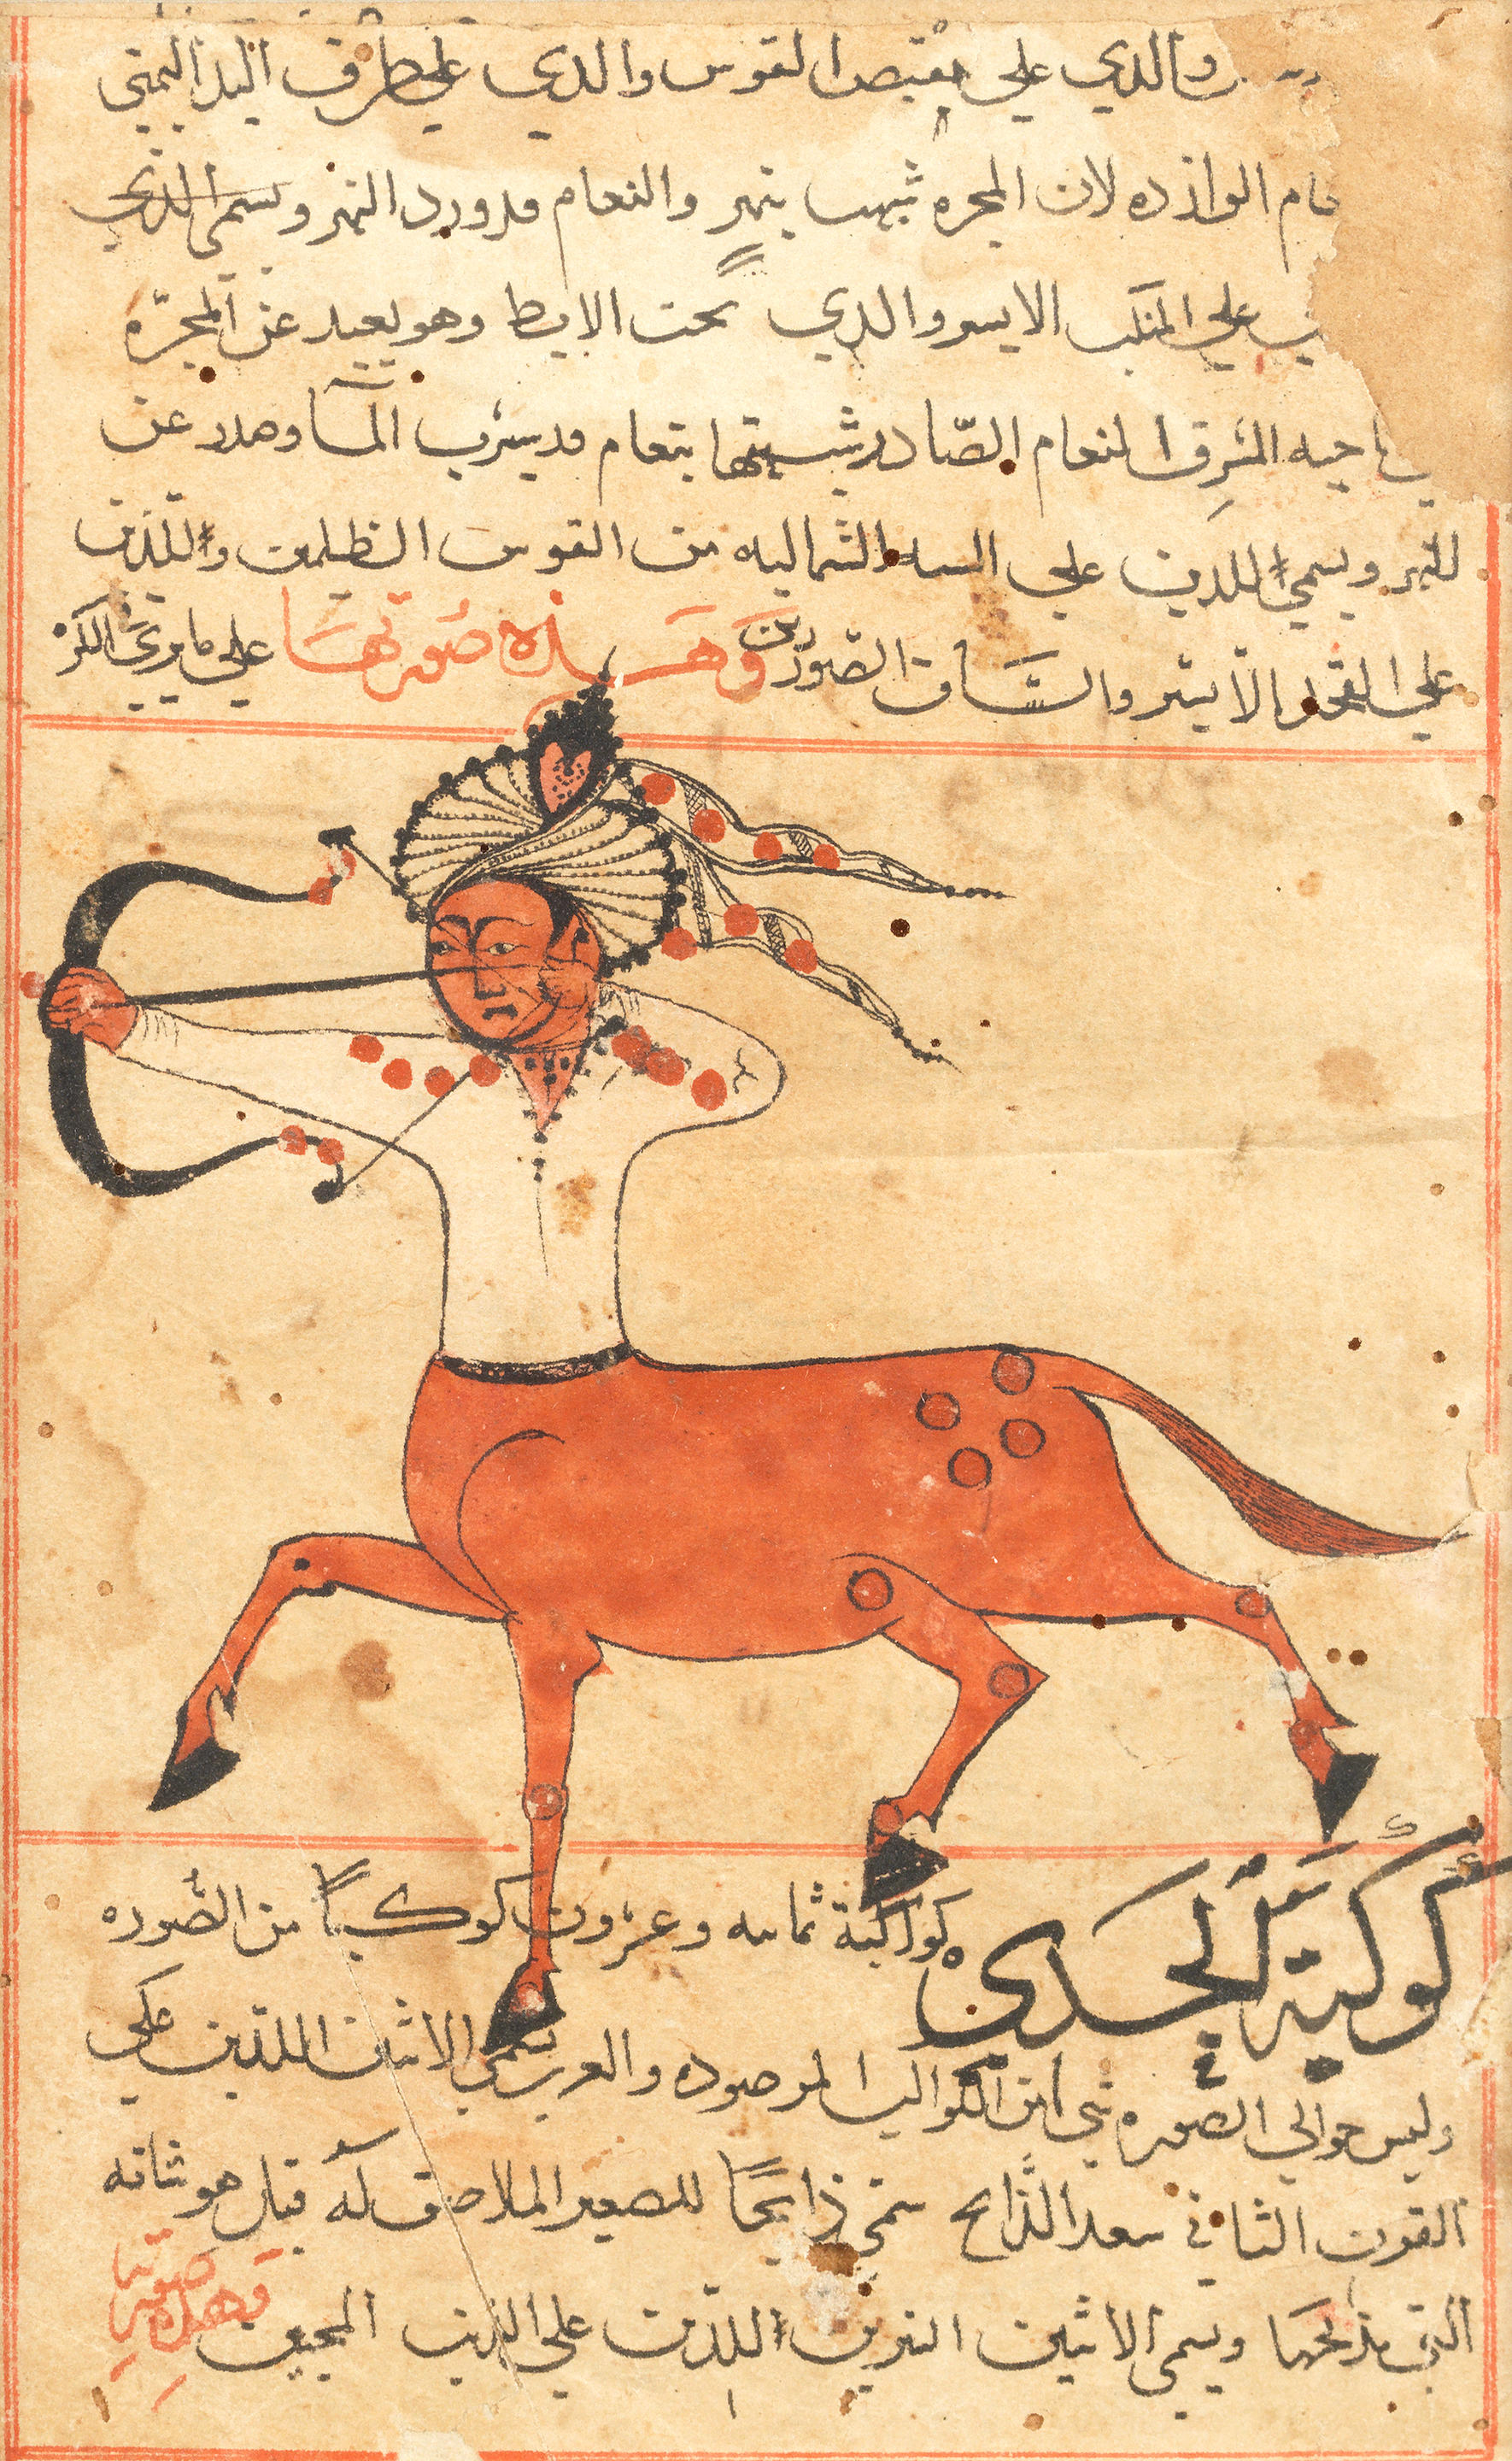 والدي علي مقبض القوس والدي علي طرف اليد اليمني
الوارده لان المجره شبهت بنهر والنعام قد ورد النهر ويسمى الذي
علي المنكب الايسر والدي تحت الابط وهو بعيد عن المجرّه
المشرق النعام الصّادر شبهتها بنعام قد شرب المآ وصدر عن
النهر ويسمي اللدين علي السيه الشماليه من القوس الظلمين واللذين
علي الفخد الأيسر والسَّاق الصورين وَهَذه صُورتهَا علي ما يري في الكره
كَوكَبَة الجَدي كواكبة ثمانيه وعشرون كوكبًا من الصُّوره
وليس حوالي الصوره شي من الكواكب المرصوده والعرب تسمي الاثنين اللذين علي
القرن الثاني سعد الذَّابح سمي ذابحًا للصغير الملاصق له قيل هو شاته
التي يذبحها ويسمى الاثنين النيرين اللذين علي الذنب المحبين وهذه صورته